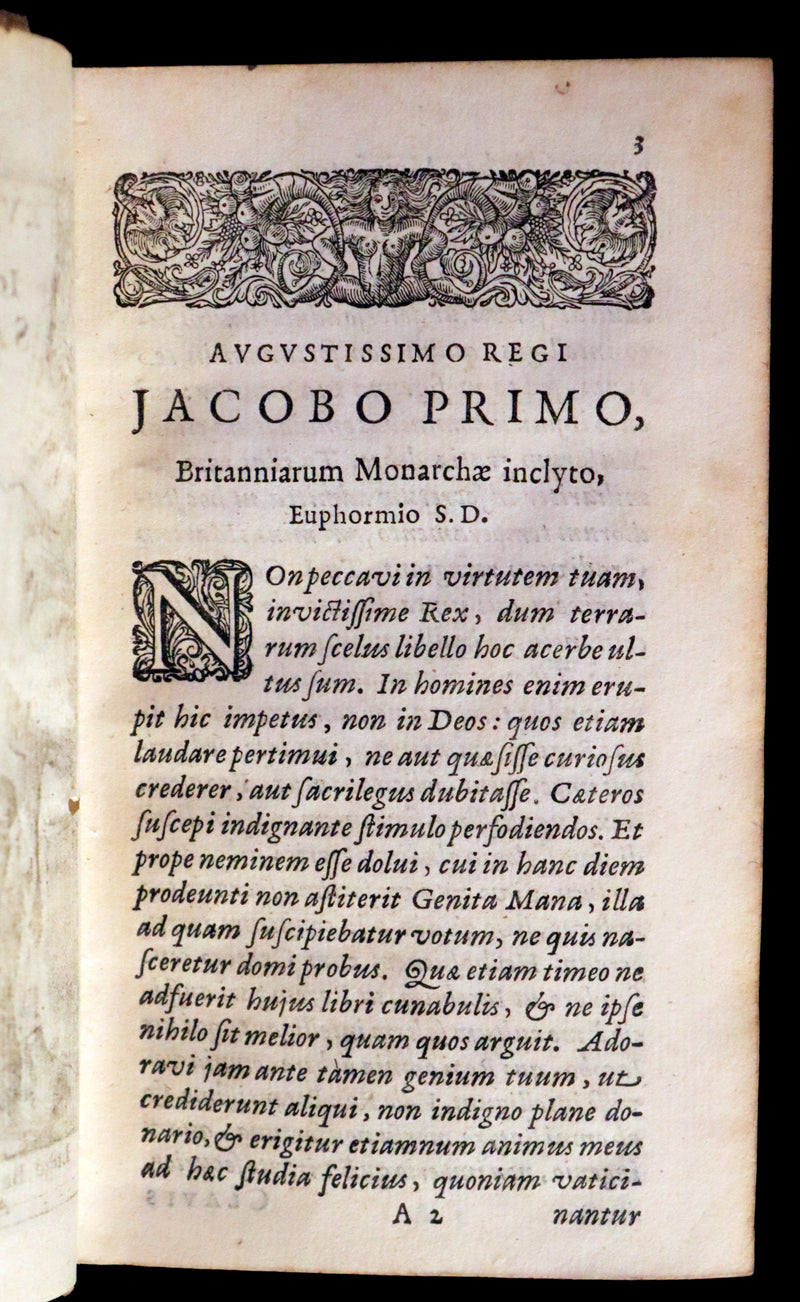 3
AVGVSTISSIMO REGI
JACOBO PRIMO,
Britanniarum Monarchæ inclyto,
Euphormio S. D.
NOn peccavi in virtutem tuam,
invictiſſime Rex, dum terra-
rum ſcelus libello hoc acerbe ul-
tus ſum. In homines enim eru-
pit hic impetus, non in Deos: quos etiam
laudare pertimui, ne aut quæſiſſe curioſus
crederer, aut ſacrilegus dubitaſſe. Cæteros
ſuſcepi indignante ſtimulo perfodiendos. Et
prope neminem eſſe dolui, cui in hanc diem
prodeunti non aſtiterit Genita Mana, illa
ad quam ſuſcipiebatur votum, ne quis na-
ſceretur domi probus. Quæ etiam timeo ne
adfuerit hujus libri cunabulis, & ne ipſe
nihilo ſit melior, quam quos arguit. Ado-
ravi jam ante tàmen genium tuum, ut
crediderunt aliqui, non indigno plane do-
nario, & erigitur etiamnum animus meus
ad hæc ſtudia felicius, quoniam vatici-
A 2 nantur